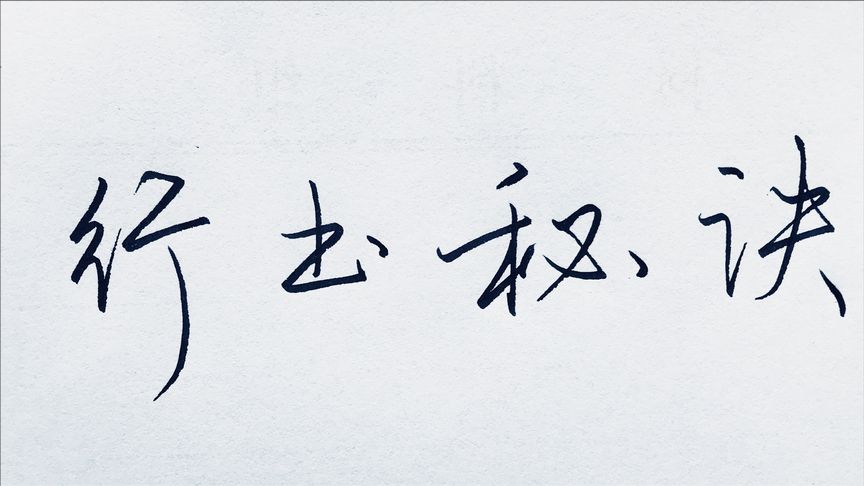 行书秘诀